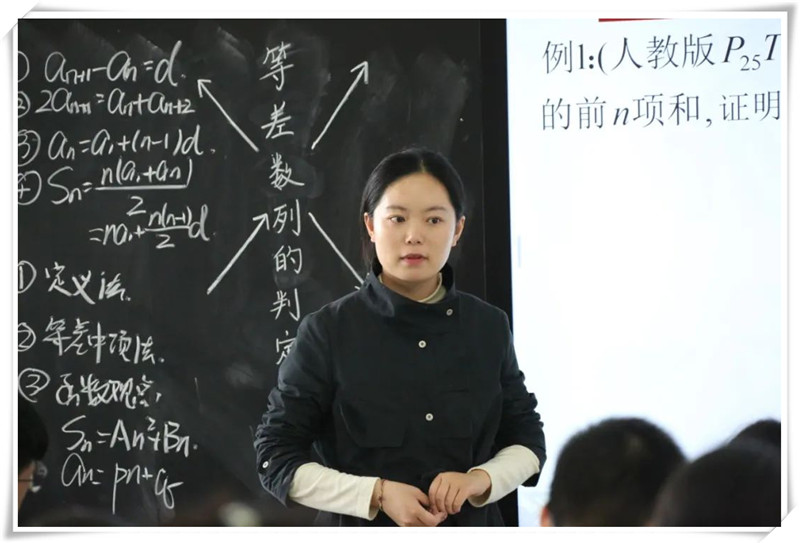 ① aₙ₊₁-aₙ=d.
② 2aₙ₊₁=aₙ+aₙ₊₂
③ aₙ=a₁+(n-1)d.
④ Sₙ=n(a₁+aₙ)/2
=na₁+n(n-1)/2 d.
① 定义法.
② 等差中项法.
③ 函数观点,
Sₙ=An²+Bn.
aₙ=pn+q
等差数列的判定
例1:(人教版 P₂₅T
的前n项和,证明